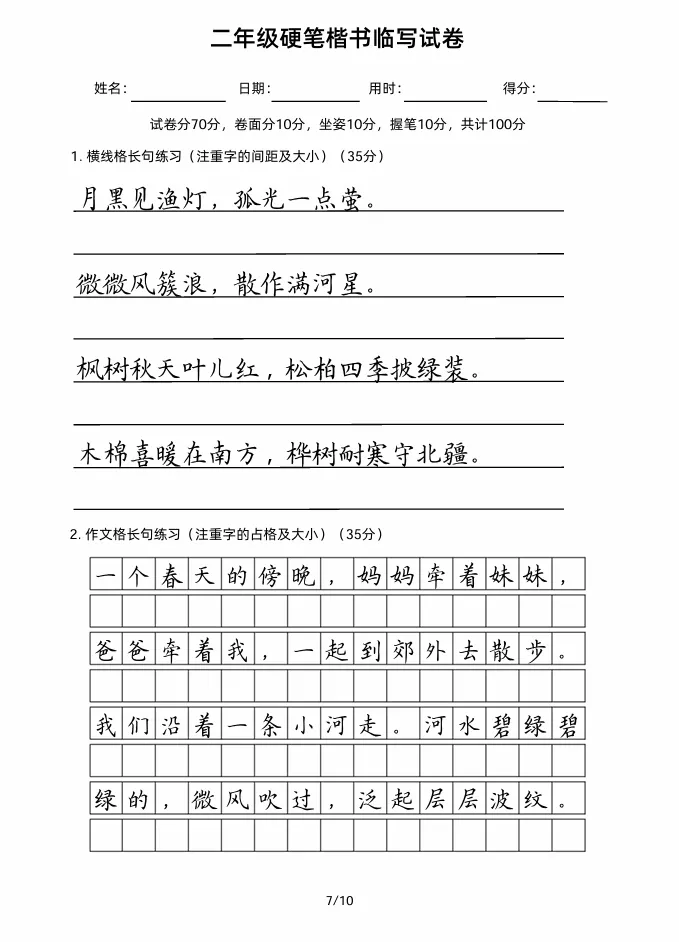 二年级硬笔楷书临写试卷
姓名： 日期： 用时： 得分：
试卷分70分，卷面分10分，坐姿10分，握笔10分，共计100分
1. 横线格长句练习（注重字的间距及大小）（35分）
月黑见渔灯，孤光一点萤。
微微风簇浪，散作满河星。
枫树秋天叶儿红，松柏四季披绿装。
木棉喜暖在南方，桦树耐寒守北疆。
2. 作文格长句练习（注重字的占格及大小）（35分）
一个春天的傍晚，妈妈牵着妹妹，
爸爸牵着我，一起到郊外去散步。
我们沿着一条小河走。河水碧绿碧
绿的，微风吹过，泛起层层波纹。
7/10